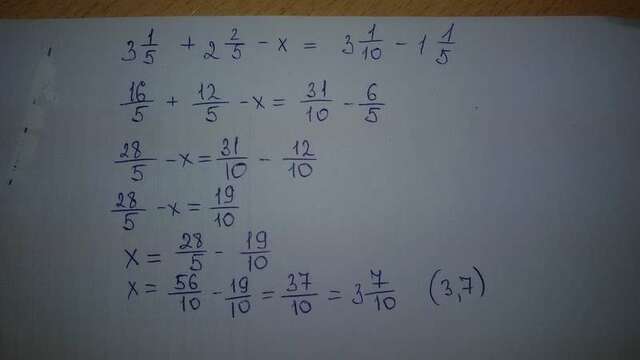 3 1/5 + 2 2/5 - x = 3 1/10 - 1 1/5
16/5 + 12/5 - x = 31/10 - 6/5
28/5 - x = 31/10 - 12/10
28/5 - x = 19/10
x = 28/5 - 19/10
x = 56/10 - 19/10 = 37/10 = 3 7/10 (3,7)